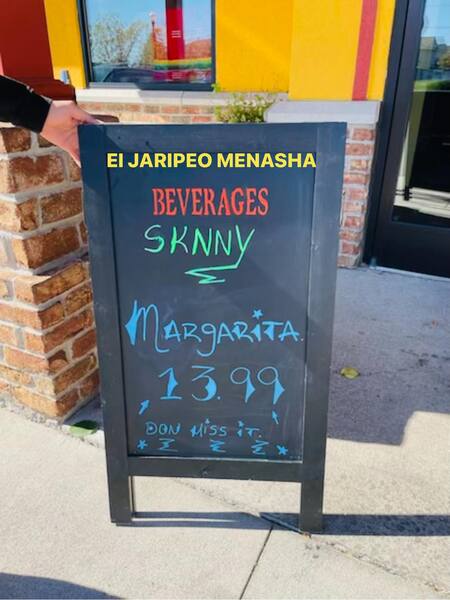 El JARIPEO MENASHA
BEVERAGES
SKNNY
MARgARiTA.
13.99
DON MiSS iT.